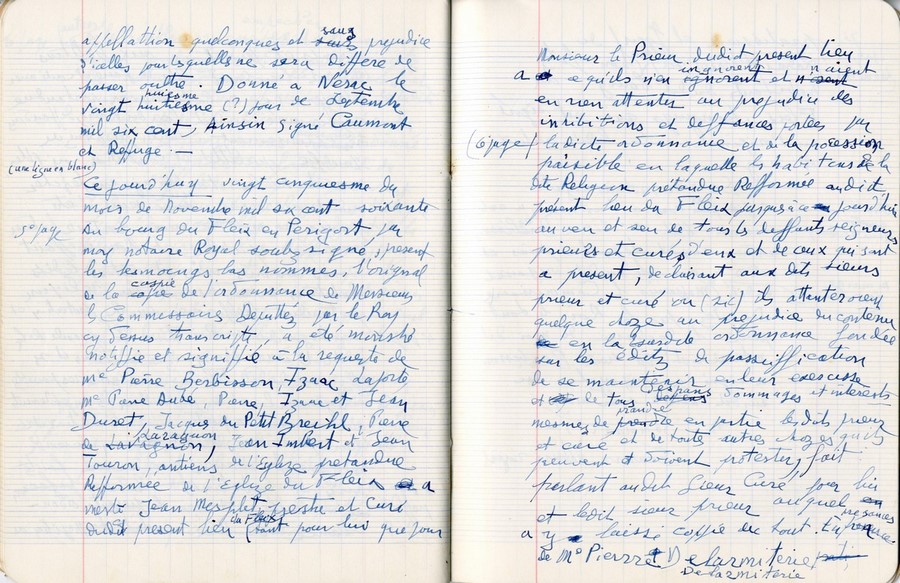 appellation quelconques et sans prejudice
d'icelles pour lesquelles ne sera differe de
passer oultre. Donné a Nerac le
huictiesme
vingt huitiesme (?) jour de Septembre
mil six cent, Ainsin signé Caumont
et Reffuge : —
(une ligne en blanc)
Ce jourd'huy vingt cinquiesme du
mois de Novembre mil six cent soixante
5e page
au bourg du Fleix en Périgort par
moy notaire Royal soubz signé, present
les tesmoings bas nommes, l'orignal
coppie
de la de l'ordonnance de Messieurs
les Commissaires Deputtés par le Roy
cy dessus transcripte, a été monstré
notiffié et signiffié à la requeste de
me Pierre Berbisson, Izaac Laporte
me Pierre Dube, Pierre, Izaac et Jean
Duret, Jacques du Petit Breihl, Pierre
de Laragnon, Jean Imbert et Jean
Touron, antiens de l'Eglize pretandue
Refformée de l'Eglize du Fleix a
mestre Jean prestre et Curé
du Fleix
dudit present lieu (tant pour luy que pour
Monsieur le Prieur dudit present lieu
a ce qu'ils n'en ignorent et n'aient
en rien attenter au prejudice des
inhibitions et deffances portées par
(6 page) ladicte ordonnance et de la pocession
paisible en laquelle les habitans de la
dte Religion prétandue Refformée audit
présent lieu du Fleix jusques à ce jourd'huy
au veu et seu de tous les deffants seigneurs
prieurs et curés d'eux et de ceux qui sont
a present, declairant aux dits sieurs
prieur et curé ou (sic) ils attanteroient
quelque choze au prejudice du contenu
en la susdite ordonnance fondée
sur les édits de passiffication
de se maintenir en leur exercisse
et de tous despans dommages et interests
prandre
mesmes de en partie lesdits prieur
et curé et de toute autres chozes qu'ils
peuvent et doivent protester, fait
parlant audit Sieur Curé, pour lui
et ledit sieur prieur auquel
a y laissé coppie du tout. En presances
de Me Pierre Delarmiterie
Delarmiterie